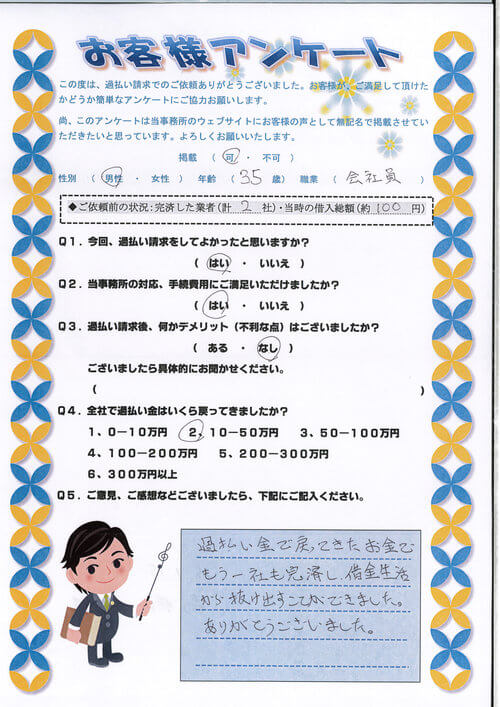 お客様アンケート
この度は、過払い請求でのご依頼ありがとうございました。お客様が、ご満足して頂けた
かどうか簡単なアンケートにご協力お願いします。
尚、このアンケートは当事務所のウェブサイトにお客様の声として無記名で掲載させてい
ただきたいと思っています。よろしくお願いいたします。
掲載 ( 可 ・ 不可 )
性別 ( 男性 ・ 女性 ) 年齢 ( 35 歳) 職業 ( 会社員 )
◆ご依頼前の状況:完済した業者(計 2 社)・当時の借入総額(約 100 円)
Q1.今回、過払い請求をしてよかったと思いますか?
( はい ・ いいえ )
Q2.当事務所の対応、手続費用にご満足いただけましたか?
( はい ・ いいえ )
Q3.過払い請求後、何かデメリット(不利な点)はございましたか?
( ある ・ なし )
ございましたら具体的にお聞かせください。
( )
Q4.全社で過払い金はいくら戻ってきましたか?
1、0-10万円 2、10-50万円 3、50-100万円
4、100-200万円 5、200-300万円
6、300万円以上
Q5.ご意見、ご感想などございましたら、下記にご記入ください。
過払い金で戻ってきたお金で
もう一社も完済し、借金生活
から抜け出すことができました。
ありがとうございました。